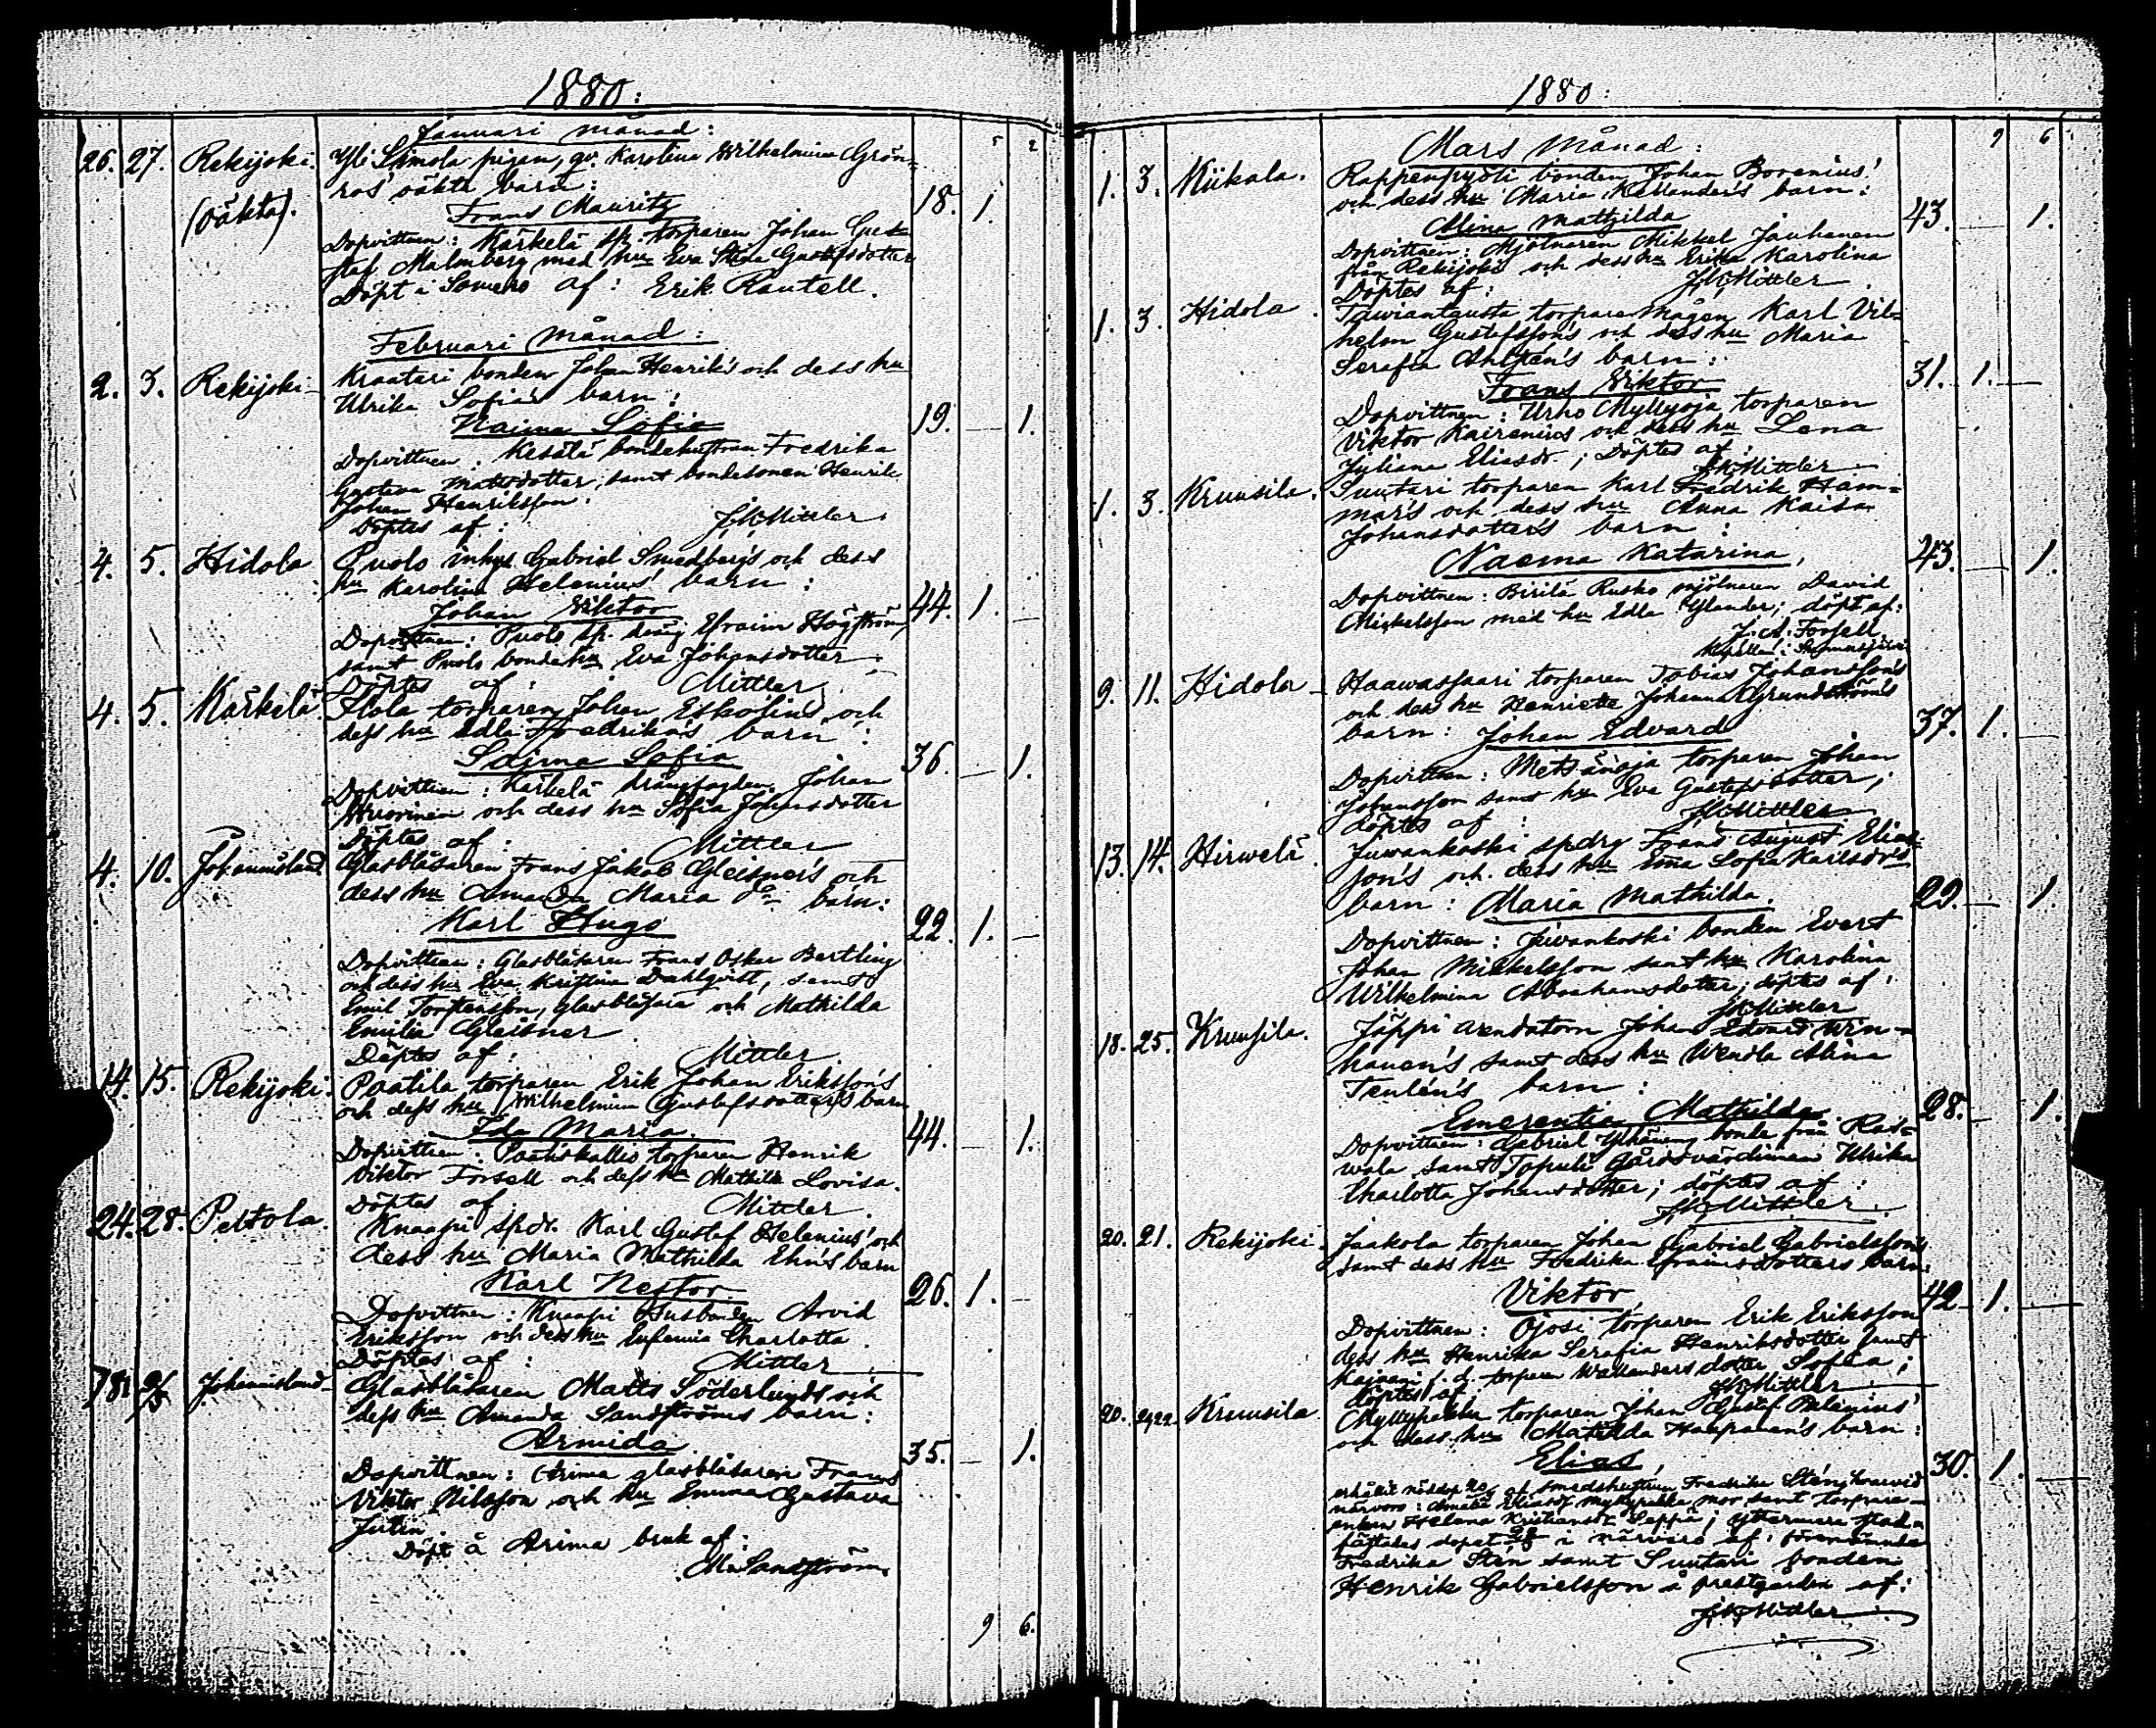 1880:
Januari månad:
5 2
26. 27. Rekijoki. Yli Simola pigan, qv. Karolina Wilhelmina Grön=
(oäkta). ros' oäkta barn:
Frans Mauritz 18. 1.
Dopvittnen: Kärkelä sp. torparen Johan Gus=
taf Malmberg med hu Eva Stina Gustafsdotter
Döpt i Somero af: Erik Rautell.
Februari Månad:
2. 3. Rekijoki Kraatari bonden Johan Henrik's och dess hu
Ulrika Sofia's barn:
Naima Sofia 19. — 1.
Dopvittnen: Kesälä bondehustrun Fredrika
Gustava Mattsdotter, samt bondesonen Henrik
Johan Henriksson.
Döptes af: J.W.Mittler
4. 5. Hidola Puolo inhys Gabriel Smedberg's och dess
hu Karolina Helenius' barn:
Johan Viktor 44. 1. —
Dopvittnen: Puolo sp. dräng Efraim Högström,
samt Puolo bondehu Eva Johansdotter
Döptes af: Mittler
4. 5. Kärkelä. Flola torparen Johan Eskolin's och
dess hu Edla Fredrika's barn:
Saima Sofia 36. — 1.
Dopvittnen: Kärkelä drängfogden Johan
Huorinen och dess hu Sofia Johansdotter
Döptes af: Mittler
4. 10. Johannislund Glasblåsaren Frans Jakob Gleisner's och
dess hu Amanda Maria barn:
Karl Hugo 22. 1. —
Dopvittnen: Glasblåsaren Frans Oskar Bertling
och dess hu Eva Kristina Dahlqvist, samt
Emil Torstensson, glasblåsare och Mathilda
Emilia Gleisner
Döptes af: Mittler
14. 15. Rekijoki. Paatila torparen Erik Johan Eriksson's
och dess hu Wilhelmina Gustafsdotter's barn
Ida Maria. 44. — 1.
Dopvittnen: Paatinkallio torparen Henrik
Viktor Forsell och dess hu Mathilda Lovisa.
Döptes af Mittler
24. 28. Peltola. Knaapi spdr. Karl Gustaf Helenius' och
dess hu Maria Mathilda Ehn's barn
Karl Nestor 26. 1. —
Dopvittnen: Knaapi husbonden Arvid
Eriksson och dess hu Eufemia Charlotta.
Döptes af: Mittler
Johannislund Glasblåsaren Matts Söderlunds och
dess hu Amanda Sandströms barn:
Armida 35. — 1.
Dopvittnen: Arima glasblåsaren Frans
Viktor Nilsson och hu Emma Gustava
Jutin.
Döpt å Arima bruk af:
M. Sandström
9 6.
1880:
Mars Månad:
9 6
1. 3. Kiikala. Rappenpyöli bonden Johan Borenius'
och dess hu Maria Kavander's barn:
Alina Mathilda 43. — 1.
Dopvittnen: Mjölnaren Mikkel Jauhanen
från Rekijoki och dess hu Erika Karolina
Döptes af: J.W.Mittler
1. 3. Hidola. Tawiantausta torpare mågen Karl Vil=
helm Gustafsson's och dess hu Maria
Serafia Ahlsten's barn:
Frans Viktor 31. 1. —
Dopvittnen: Urho Myllyoja torparen
Viktor Kairenius och dess hu Lena
Juliana Eliasdr.; Döptes af:
J.W.Mittler
1. 3. Kruusila. Suutari torparen Karl Fredrik Ham=
mar's och dess hu Anna Kaisa
Johansdotter's barn:
Naema Katarina, 43. — 1.
Dopvittnen: Birilä Rusko mjölnaren David
Mickelsson med hu Edla Ylander; döpt af:
J.A. Forsell
9. 11. Hidola Haawassaari torparen Tobias Johansson's
och dess hu Henrietta Johanna Grundström's
barn: Johan Edvard 37. 1. —
Dopvittnen: Metsänoja torparen Johan
Johansson samt hu Eva Gustafsdotter;
döptes af: J.W.Mittler
13. 14. Hirwelä. Juwankoski spdrg Frans August Elias=
son's och dess hu Ema Sofia Karlsdr's
barn: Maria Mathilda. 29. — 1.
Dopvittnen: Juwankoski bonden Evert
Johan Mickelsson samt hu Karolina
Wilhelmina Abrahamsdotter; döptes af:
J.W.Mittler
18. 25. Kruusila. Jäppi arendatorn Johan Edvard Win=
hanen's samt dess hu Wendla Alina
Tenlén's barn:
Emerentia Mathilda 28. — 1.
Dopvittnen: Gabriel Yhäinen bonde från Rad=
wala samt Tapuli gårdsvärdinnan Ulrika
Charlotta Johansdotter; döptes af:
J.W.Mittler
20. 21. Rekijoki. Jaakola torparen Johan Gabriel Gabrielsson's
samt dess hu Fredrika Efraimsdotters barn:
Viktor 42 1. —
Dopvittnen: Ojosi torparen Erik Eriksson
dess hu Henrika Serafia Henriksdotter samt
Kajnari f. d. torparen Wallanders dotter Sofia;
döptes af: J.W.Mittler
20. Kruusila. Myllypakka torparen Johan Gustaf Palenius'
och dess hu Matilda Haapanen's barn:
Elias, 30. 1. —
erhållit nöddop af smedshustrun Fredrika Sten, hvarvid
närvoro: Amalia Eliasdr Myllypakka mor samt torpare=
enkan Helena Kristiansdr Seppä; yttermera stad=
fästades dopet 22 i närvaro af förenämnda
Fredrika Sten samt Suutari bonden
Henrik Gabrielsson å prestgården af:
J.W.Mittler